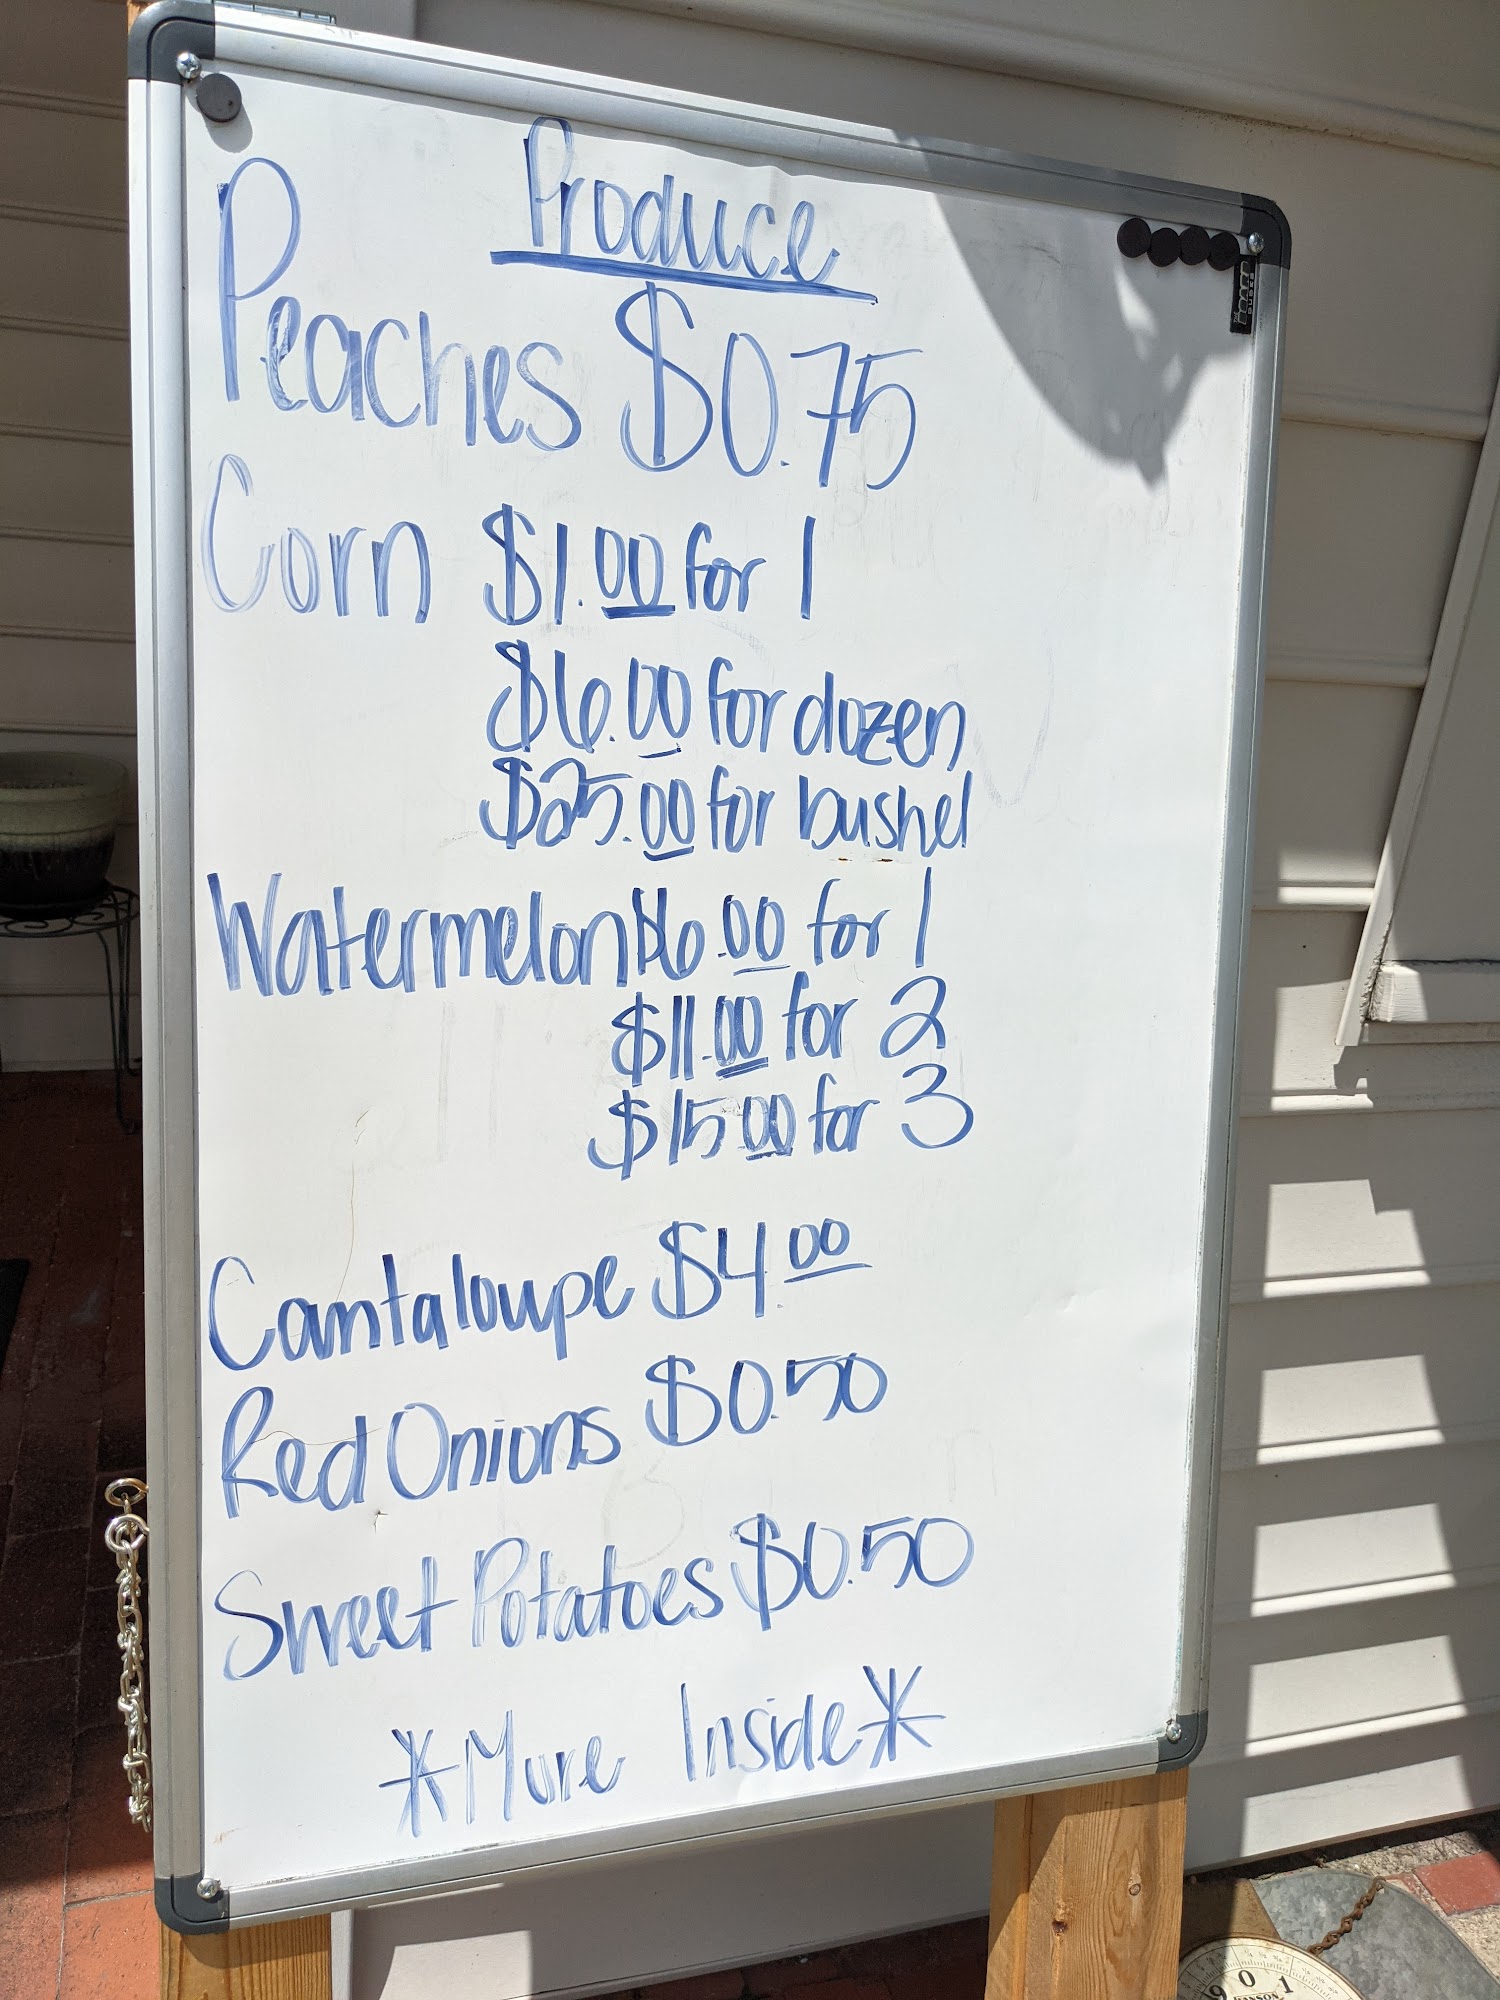 Produce
Peaches $0.75
Corn $1.00 for 1
$6.00 for dozen
$25.00 for bushel
Watermelon $6.00 for 1
$11.00 for 2
$15.00 for 3
Cantaloupe $4.00
Red Onions $0.50
Sweet Potatoes $0.50
*More Inside*
9 0 1
HANSON